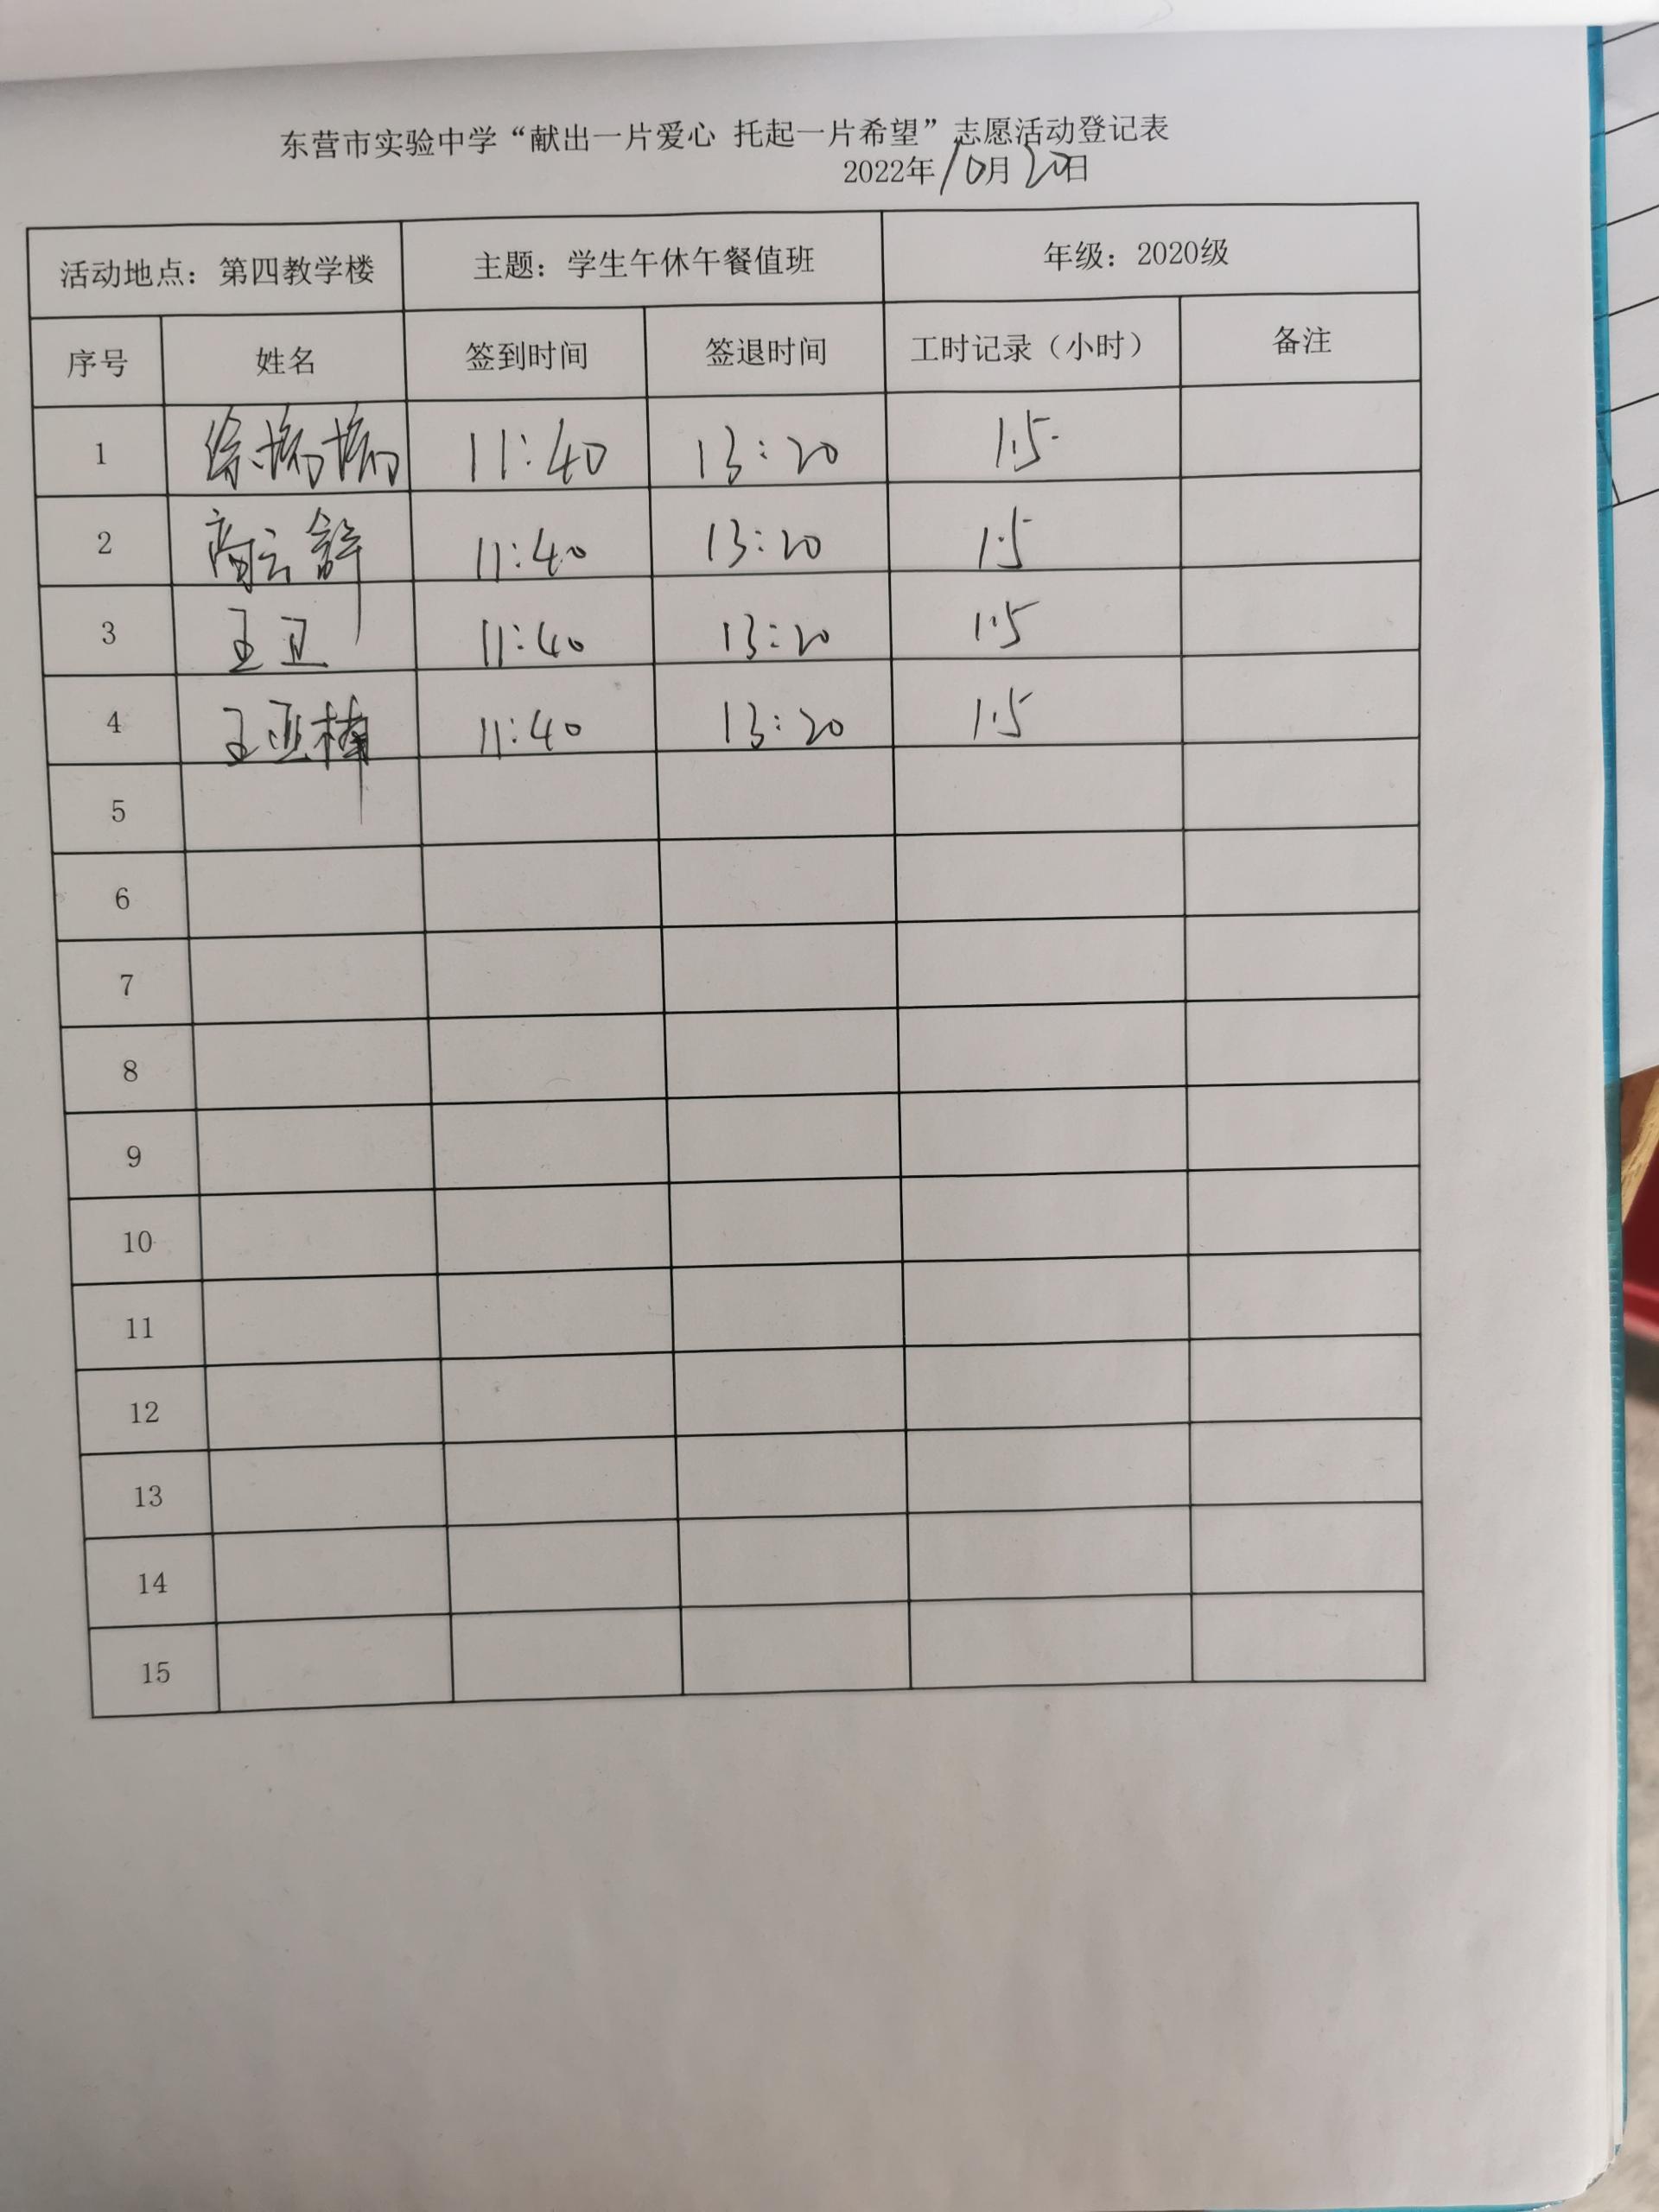 东营市实验中学“献出一片爱心 托起一片希望”志愿活动登记表
2022年10月20日
活动地点：第四教学楼 主题：学生午休午餐值班 年级：2020级
序号 姓名 签到时间 签退时间 工时记录（小时） 备注
1 徐 11:40 13:20 1.5
2 商云舒 11:40 13:20 1.5
3 王卫 11:40 13:20 1.5
4 王亚楠 11:40 13:20 1.5
5
6
7
8
9
10
11
12
13
14
15